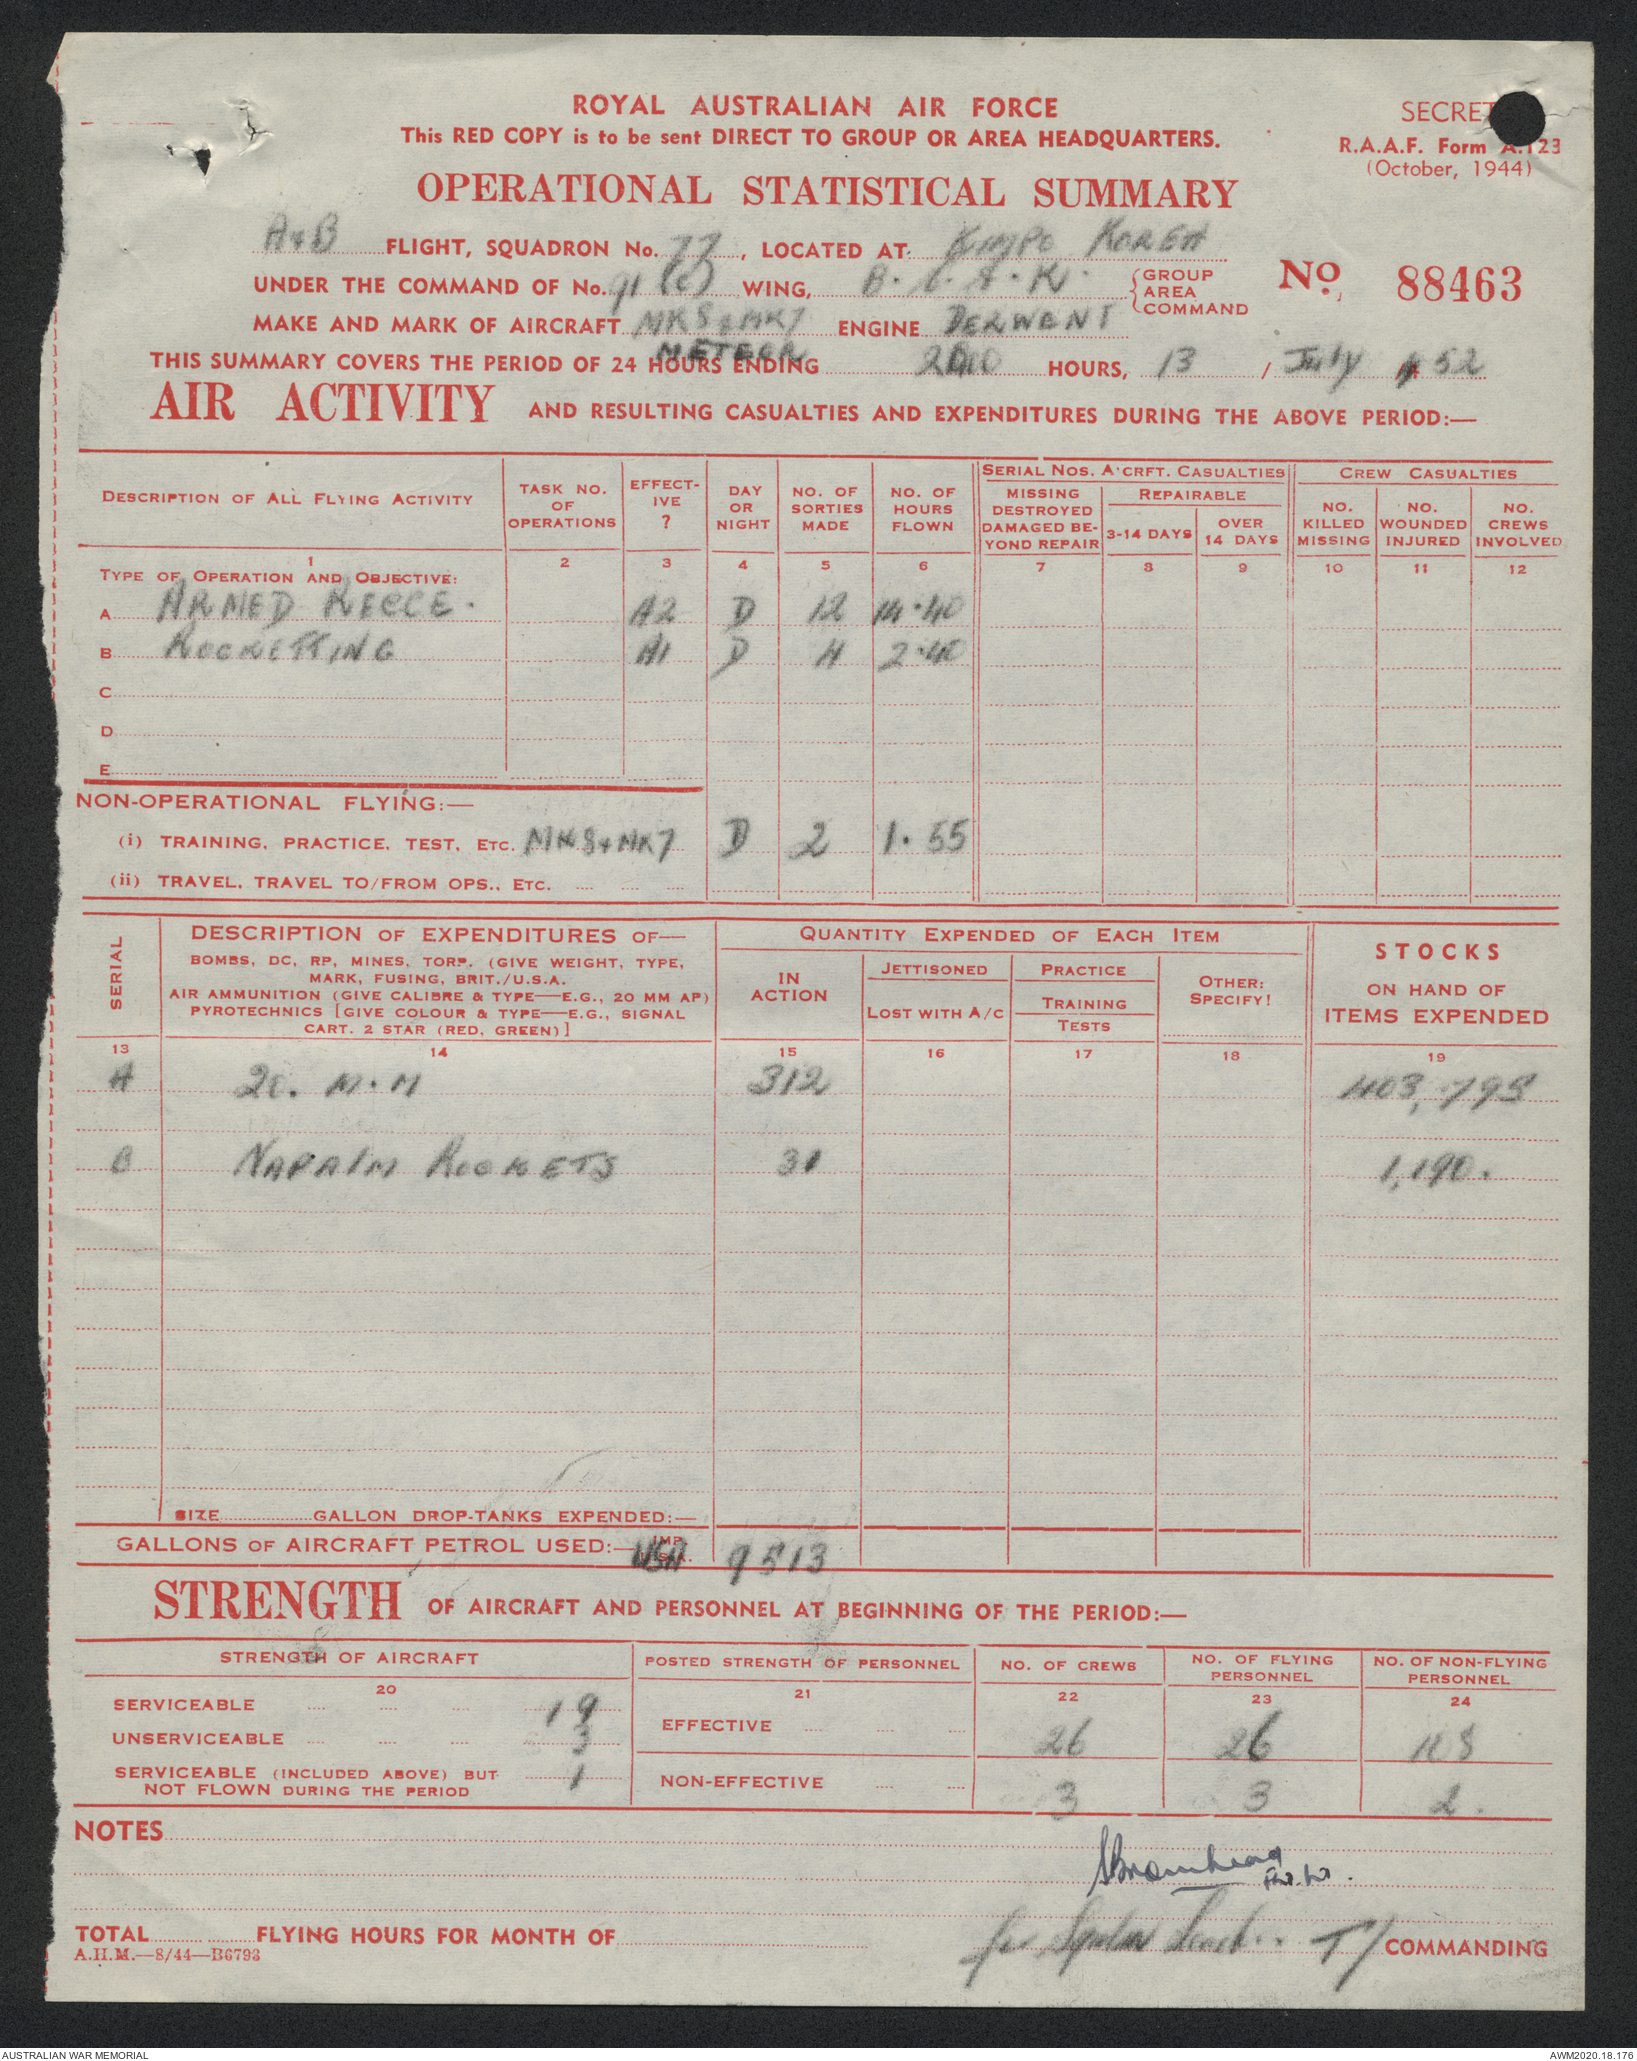 ROYAL AUSTRALIAN AIR FORCE
This RED COPY is to be sent DIRECT TO GROUP OR AREA HEADQUARTERS.
SECRET
R.A.A.F. Form A.123
(October, 1944)
OPERATIONAL STATISTICAL SUMMARY
A & B FLIGHT, SQUADRON No. 77, LOCATED AT KIMPO KOREA
UNDER THE COMMAND OF No. 91 (C) WING, B.C.A.K. { GROUP AREA COMMAND
No. 88463
MAKE AND MARK OF AIRCRAFT MK 8 & MK 7 METEOR ENGINE DERWENT
THIS SUMMARY COVERS THE PERIOD OF 24 HOURS ENDING HOURS, 13 / July 52
AIR ACTIVITY AND RESULTING CASUALTIES AND EXPENDITURES DURING THE ABOVE PERIOD:—
DESCRIPTION OF ALL FLYING ACTIVITY
TASK NO. OF OPERATIONS
EFFECT-IVE ?
DAY OR NIGHT
NO. OF SORTIES MADE
NO. OF HOURS FLOWN
SERIAL NOS. A'CRFT. CASUALTIES
MISSING DESTROYED DAMAGED BE-YOND REPAIR
REPAIRABLE
3-14 DAYS
OVER 14 DAYS
CREW CASUALTIES
NO. KILLED MISSING
NO. WOUNDED INJURED
NO. CREWS INVOLVED
1 2 3 4 5 6 7 8 9 10 11 12
TYPE OF OPERATION AND OBJECTIVE:
A ARMED RECCE. A2 D 12 14.40
B ROCKETTING A1 D 4 2.40
C
D
E
NON-OPERATIONAL FLYING:—
(i) TRAINING, PRACTICE, TEST, ETC. MK 8 & MK 7 D 2 1.55
(ii) TRAVEL, TRAVEL TO/FROM OPS., ETC.
SERIAL
DESCRIPTION OF EXPENDITURES OF—
BOMBS, DC, RP, MINES, TORP. (GIVE WEIGHT, TYPE,
MARK, FUSING, BRIT./U.S.A.
AIR AMMUNITION (GIVE CALIBRE & TYPE—E.G., 20 MM AP)
PYROTECHNICS [GIVE COLOUR & TYPE—E.G., SIGNAL
CART. 2 STAR (RED, GREEN)]
QUANTITY EXPENDED OF EACH ITEM
IN ACTION
JETTISONED
LOST WITH A/C
PRACTICE
TRAINING
TESTS
OTHER: SPECIFY!
STOCKS
ON HAND OF
ITEMS EXPENDED
13 14 15 16 17 18 19
A 20. M.M 312 403,798
B NAPALM ROCKETS 31 1,190.
SIZE GALLON DROP-TANKS EXPENDED:—
GALLONS OF AIRCRAFT PETROL USED:— USA 9513
STRENGTH OF AIRCRAFT AND PERSONNEL AT BEGINNING OF THE PERIOD:—
STRENGTH OF AIRCRAFT
POSTED STRENGTH OF PERSONNEL
NO. OF CREWS
NO. OF FLYING PERSONNEL
NO. OF NON-FLYING PERSONNEL
20 21 22 23 24
SERVICEABLE 19
UNSERVICEABLE 3
SERVICEABLE (INCLUDED ABOVE) BUT NOT FLOWN DURING THE PERIOD 1
EFFECTIVE 26 26
NON-EFFECTIVE 3 3 2.
NOTES
for Sqdn Leader TY COMMANDING
TOTAL FLYING HOURS FOR MONTH OF
A.H.M.—8/44—B6793
AUSTRALIAN WAR MEMORIAL
AWM2020.18.176